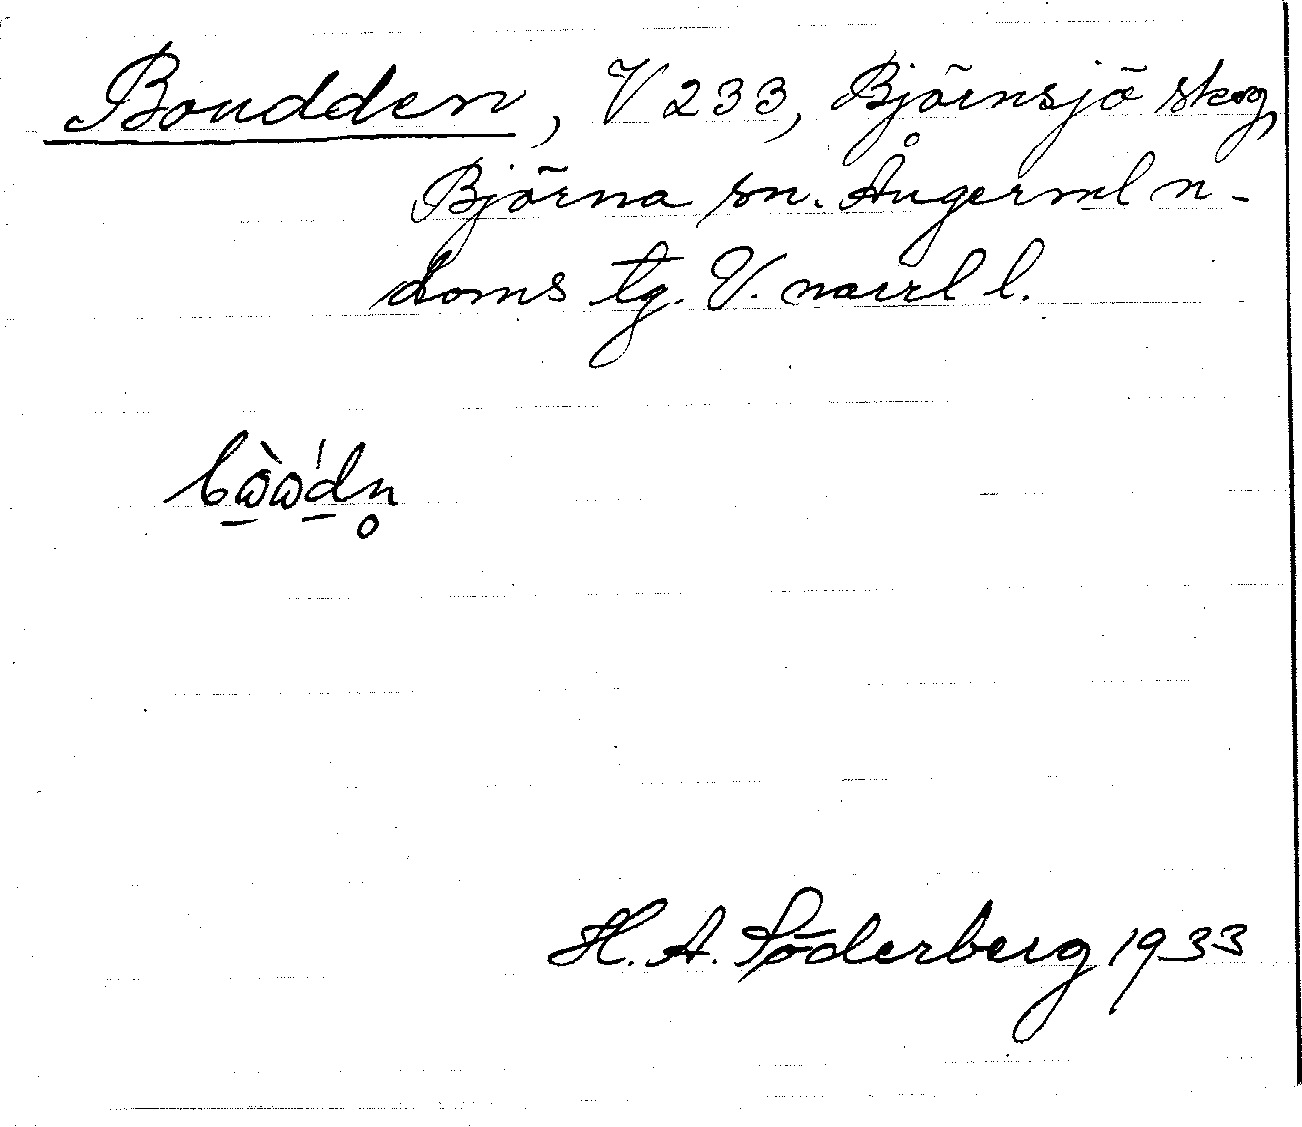 Boudden, V 233, Björnsjö skog,
Björna sn. Ångerml n-
doms tg. V. norrl l.
H. A. Söderberg 1933